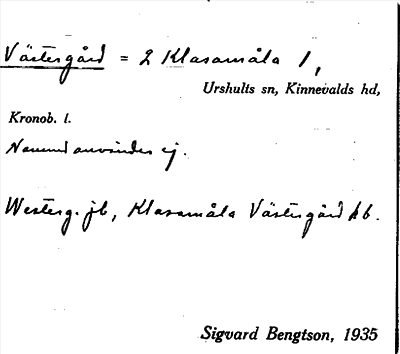 Västergård = 2 Klasamåla 1,
Urshults sn, Kinnevalds hd,
Kronob. l.
Namnet användes ej.
Westerg. jb, Klasamåla Västergård kb.
Sigvard Bengtson, 1935